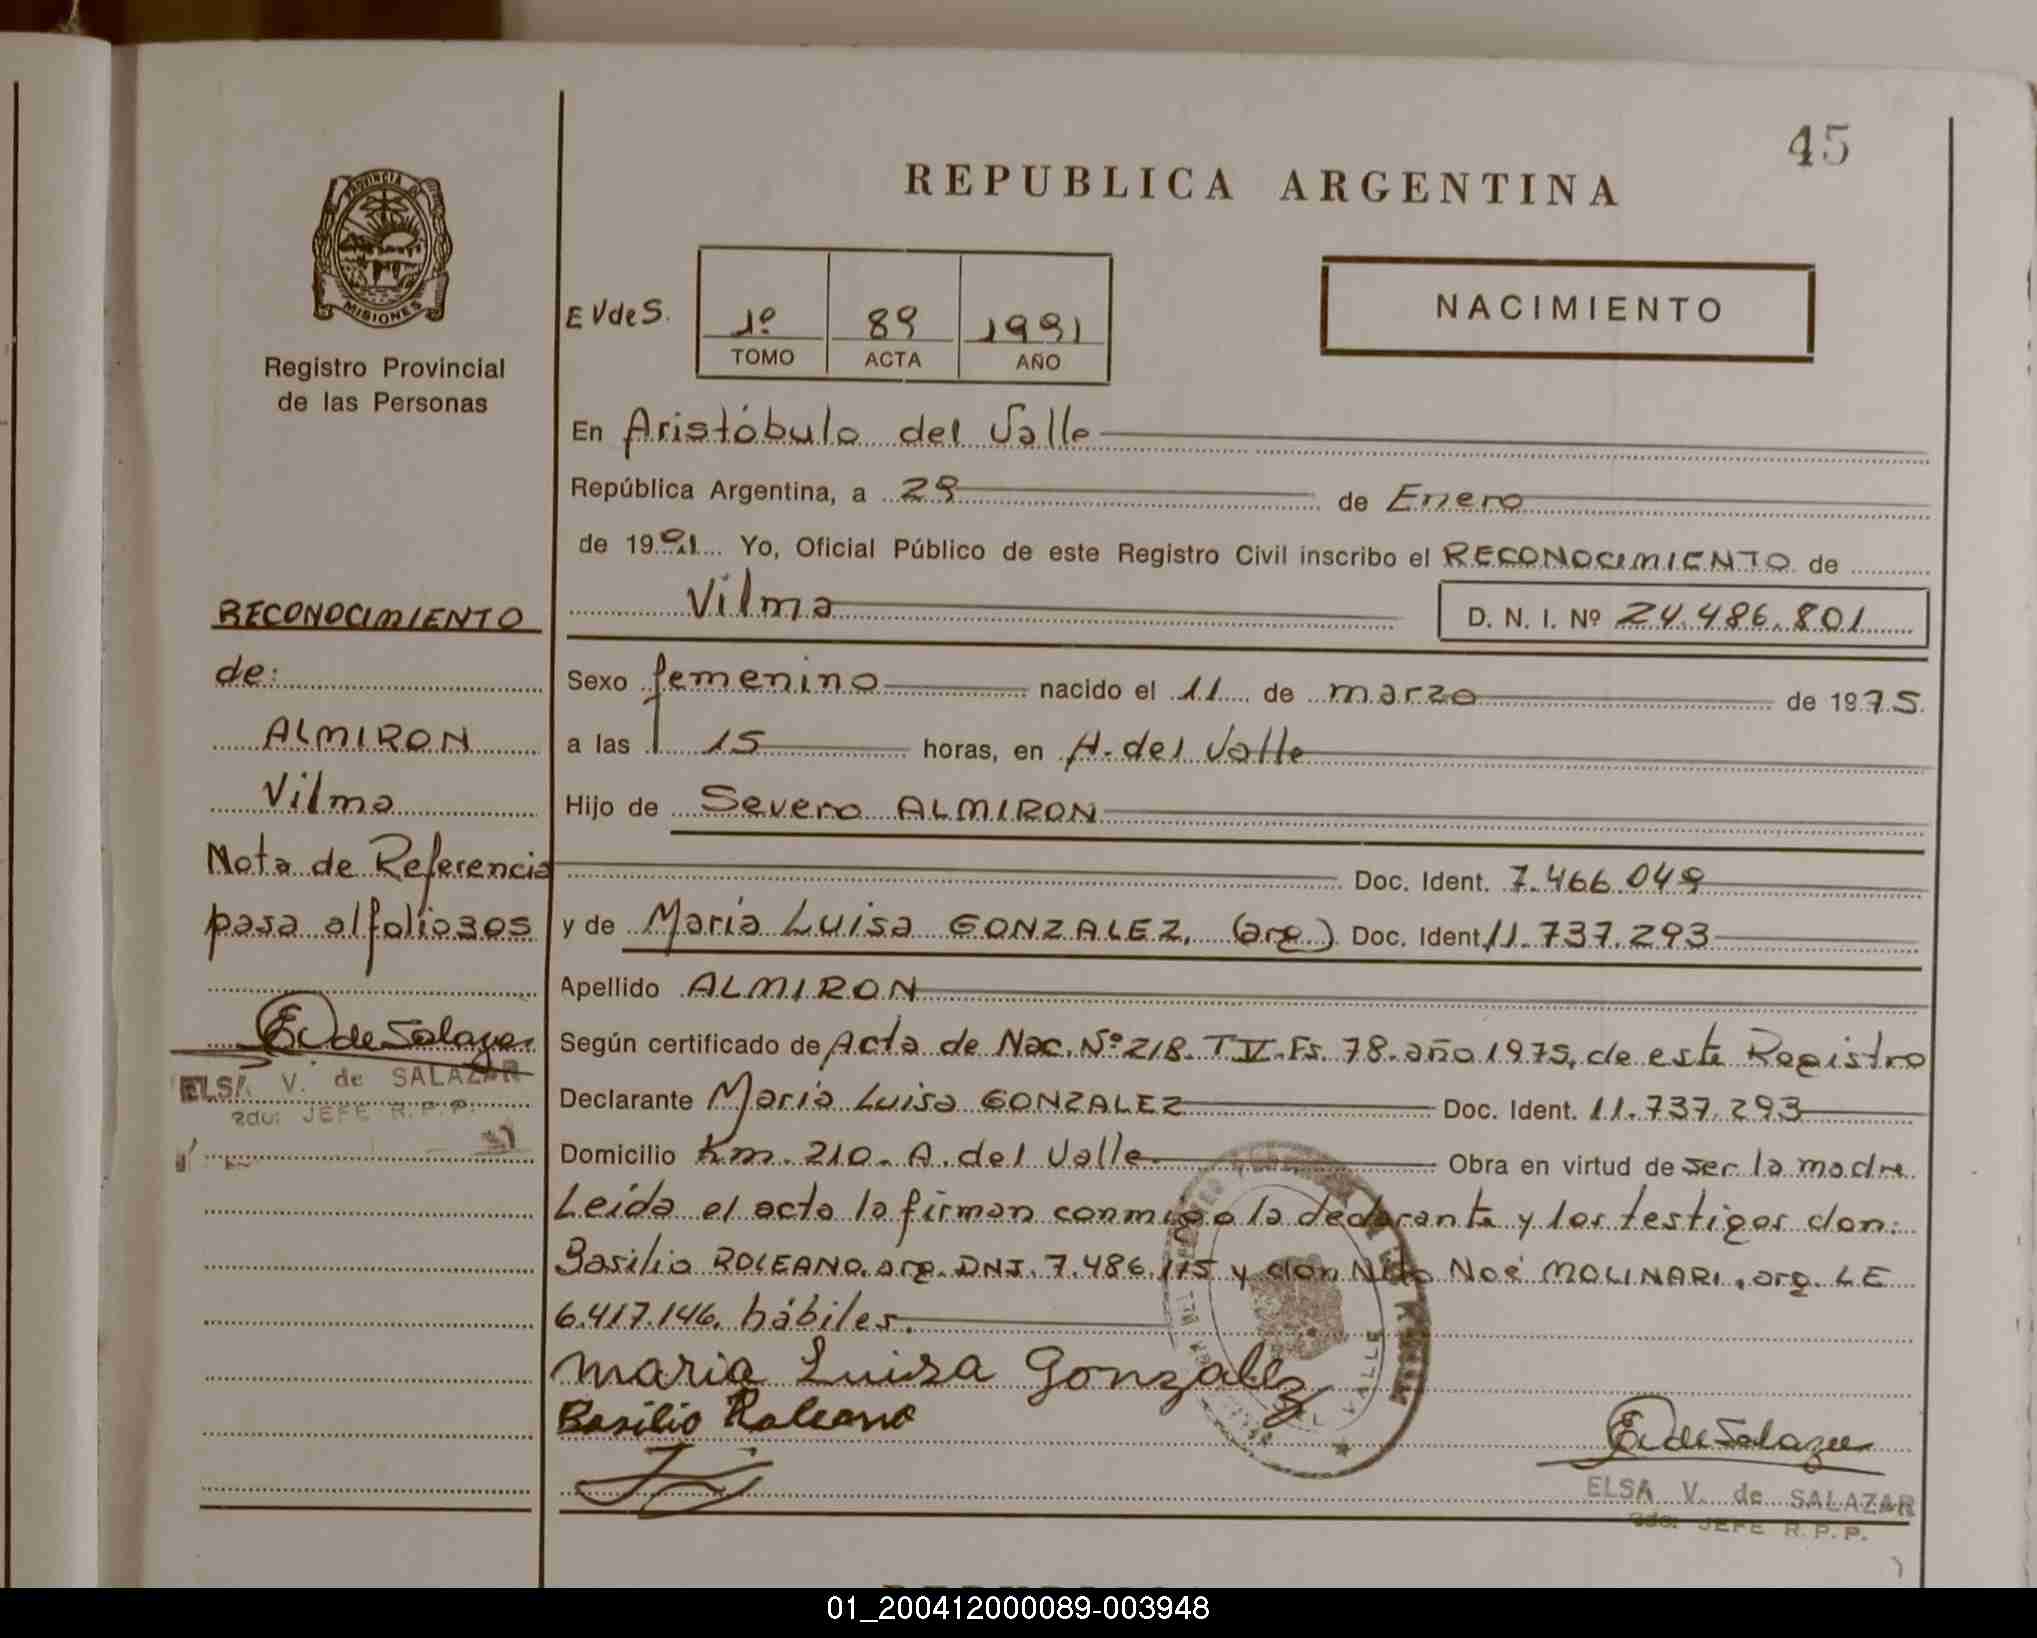 45
REPUBLICA ARGENTINA
PROVINCIA DE
MISIONES
Registro Provincial
de las Personas
EVdeS.
1º 89 1991
TOMO ACTA AÑO
NACIMIENTO
En Aristóbulo del Valle
República Argentina, a 29 de Enero
de 1991 Yo, Oficial Público de este Registro Civil inscribo el RECONOCIMIENTO de
Vilma D. N. I. Nº 24.486.801
Sexo femenino nacido el 11 de marzo de 1975
a las 15 horas, en A. del Valle
Hijo de Severo ALMIRON
Doc. Ident. 7.466.049
y de Maria Luisa GONZALEZ, (arg) Doc. Ident. 11.737.293
Apellido ALMIRON
Según certificado de Acta de Nac. Nº 218. T IV. Fs. 78. año 1975, de este Registro
Declarante Maria Luisa GONZALEZ Doc. Ident. 11.737.293
Domicilio Km. 210. A. del Valle Obra en virtud de ser la madre.
Leída el acta la firman conmigo la declarante y los testigos don:
Basilio ROLEANO. arg. DNI. 7.486.115 y don Nido Noé MOLINARI, arg. LE
6.417.146. hábiles.
Maria Luisa Gonzalez
Basilio Roleano
EVdeSalazar
ELSA V. de SALAZAR
JEFE R.P.P.
VALLE
RECONOCIMIENTO
de:
ALMIRON
Vilma
Nota de Referencia
pasa al folio 305
EVdeSalazar
ELSA V. de SALAZAR
JEFE R.P.P.
01_200412000089-003948